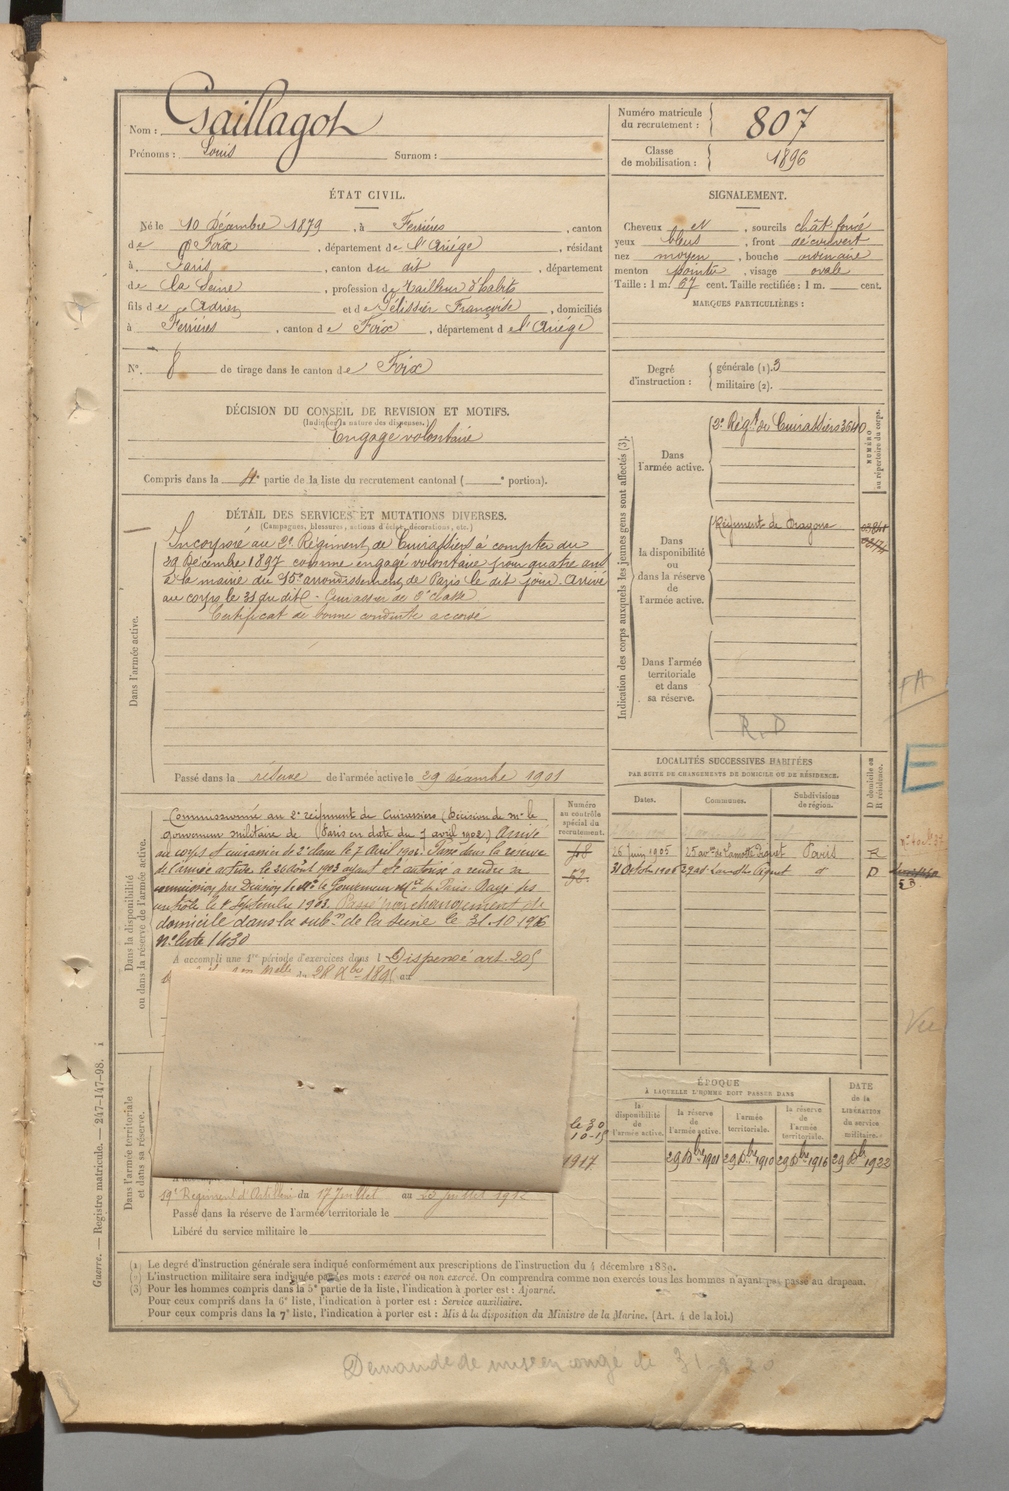 Nom : Gaillagot
Prénoms : Louis Surnom :
Numéro matricule du recrutement : 807
Classe de mobilisation : 1896
ÉTAT CIVIL.
Né le 10 Décembre 1879, à Ferrières, canton
de Foix, département de l'Ariège, résidant
à Paris, canton du dit, département
de la Seine, profession de Tailleur d'habits
fils de Adrien et de Pélissier Françoise, domiciliés
à Ferrières, canton de Foix, département de l'Ariège
N° 8 de tirage dans le canton de Foix
SIGNALEMENT.
Cheveux et, sourcils chât foncé
yeux bleus, front découvert
nez moyen, bouche moyenne
menton pointu, visage ovale
Taille : 1 m. 67 cent. Taille rectifiée : 1 m. cent.
MARQUES PARTICULIÈRES :
Degré d'instruction : générale (1). 3
militaire (2).
DÉCISION DU CONSEIL DE REVISION ET MOTIFS.
(Indiquer la nature des dispenses.)
Engagé volontaire
Compris dans la 4e partie de la liste du recrutement cantonal ( e portion).
DÉTAIL DES SERVICES ET MUTATIONS DIVERSES.
(Campagnes, blessures, actions d'éclat, décorations, etc.)
Dans l'armée active.
Incorporé au 2e Régiment de Cuirassiers à compter du
29 Décembre 1897 comme engagé volontaire pour quatre ans
à la mairie du 15e arrondissement de Paris le dit jour. Arrivé
au corps le 31 du dit. Cuirassier de 2e classe.
Certificat de bonne conduite accordé
Passé dans la réserve de l'armée active le 29 décembre 1901
Indication des corps auxquels les jeunes gens sont affectés (3).
NUMÉRO au répertoire du corps.
Dans l'armée active.
2e Régt de Cuirassiers 3640
Dans la disponibilité ou dans la réserve de l'armée active.
Régiment de Dragons
Dans l'armée territoriale et dans sa réserve.
R. D
FA
E
LOCALITÉS SUCCESSIVES HABITÉES
PAR SUITE DE CHANGEMENTS DE DOMICILE OU DE RÉSIDENCE.
D domicile ou R résidence.
Dates. Communes. Subdivisions de région.
26 Juin 1905 25 av. de Lamotte Piquet Paris R
31 Octobre 1906 D
Dans la disponibilité ou dans la réserve de l'armée active.
Numéro au contrôle spécial du recrutement.
Commissionné au 2e régiment de Cuirassiers (Décision de Mr le
gouverneur militaire de Paris en date du 7 avril 1902) Arrivé
au corps et cuirassier de 2e classe le 7 Avril 1902. Passé dans la réserve
de l'armée active le
contrôle le 8 Septembre 1903. Passé par changement de
domicile dans la subon de la Seine le 31.10.1906
N° liste 1430
A accompli une 1re période d'exercices dans l Dispensé art. 205
le 30
10-15
1917
Vu
ÉPOQUE
À LAQUELLE L'HOMME DOIT PASSER DANS
DATE de la LIBÉRATION du service militaire.
la disponibilité de l'armée active. la réserve de l'armée active. l'armée territoriale. la réserve de l'armée territoriale.
29 Xbre 1901 29 Xbre 1910 29 Xbre 1916 29 Xbre 1922
Dans l'armée territoriale et dans sa réserve.
19e Régiment d'Artillerie du 17 Juillet au 25 juillet 1912
Passé dans la réserve de l'armée territoriale le
Libéré du service militaire le
(1) Le degré d'instruction générale sera indiqué conformément aux prescriptions de l'instruction du 4 décembre 1889.
(2) L'instruction militaire sera indiquée par les mots : exercé ou non exercé. On comprendra comme non exercés tous les hommes n'ayant pas passé au drapeau.
(3) Pour les hommes compris dans la 5e partie de la liste, l'indication à porter est : Ajourné.
Pour ceux compris dans la 6e liste, l'indication à porter est : Service auxiliaire.
Pour ceux compris dans la 7e liste, l'indication à porter est : Mis à la disposition du Ministre de la Marine. (Art. 4 de la loi.)
Guerre. — Registre matricule. — 247-147-98.
Demande de mise en congé le 31-8-20